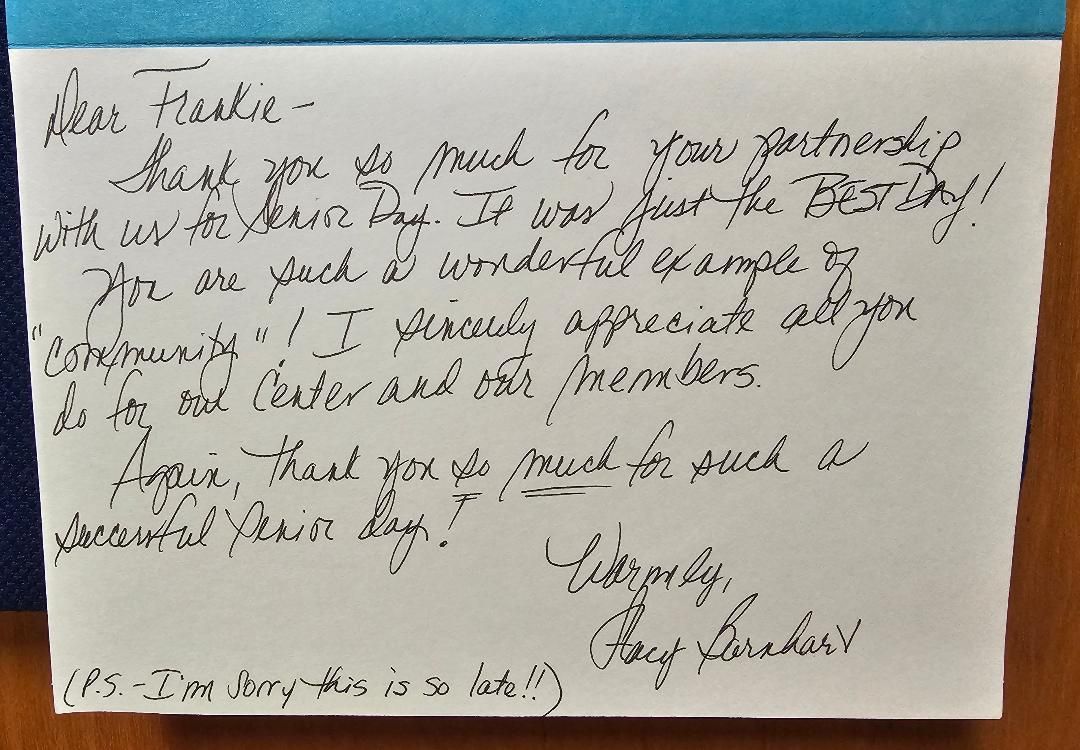 Dear Frankie -
Thank you so much for your partnership
with us for Senior Day. It was just the BEST DAY!
You are such a wonderful example of
"community"! I sincerely appreciate all you
do for our Center and our members.
Again, thank you so much for such a
successful Senior Day!
Warmly,
Stacy Barnhart
(P.S. - I'm sorry this is so late!!)